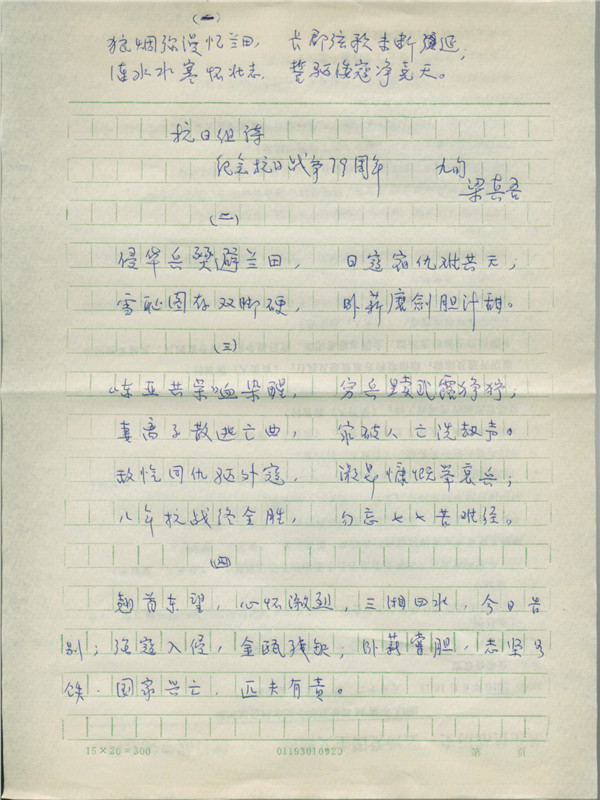 (一)
狼烟弥漫怀兰田, 长郡弦歌未断延,
涟水水寒怀壮志, 誓驱倭寇净尧天。
抗日组诗
纪念抗日战争79周年 九旬
梁真吾
(二)
侵华兵燹避兰田, 日寇宿仇难共天;
雪耻图存双脚硬, 卧薪磨剑胆汁甜。
(三)
“东亚共荣”血染醒, 穷兵黩武露狰狞;
妻离子散逃亡曲, 家破人亡洗劫声。
敌忾同仇驱外寇, 激昂慷慨举哀兵;
八年抗战终全胜, 勿忘七七苦难经。
(四)
翘首东望, 心怀激烈, 三湘四水, 今日告
别; 强寇入侵, 金瓯残缺; 卧薪尝胆, 志坚如
铁. 国家兴亡, 匹夫有责。
15×20=300 0119301092 第 页